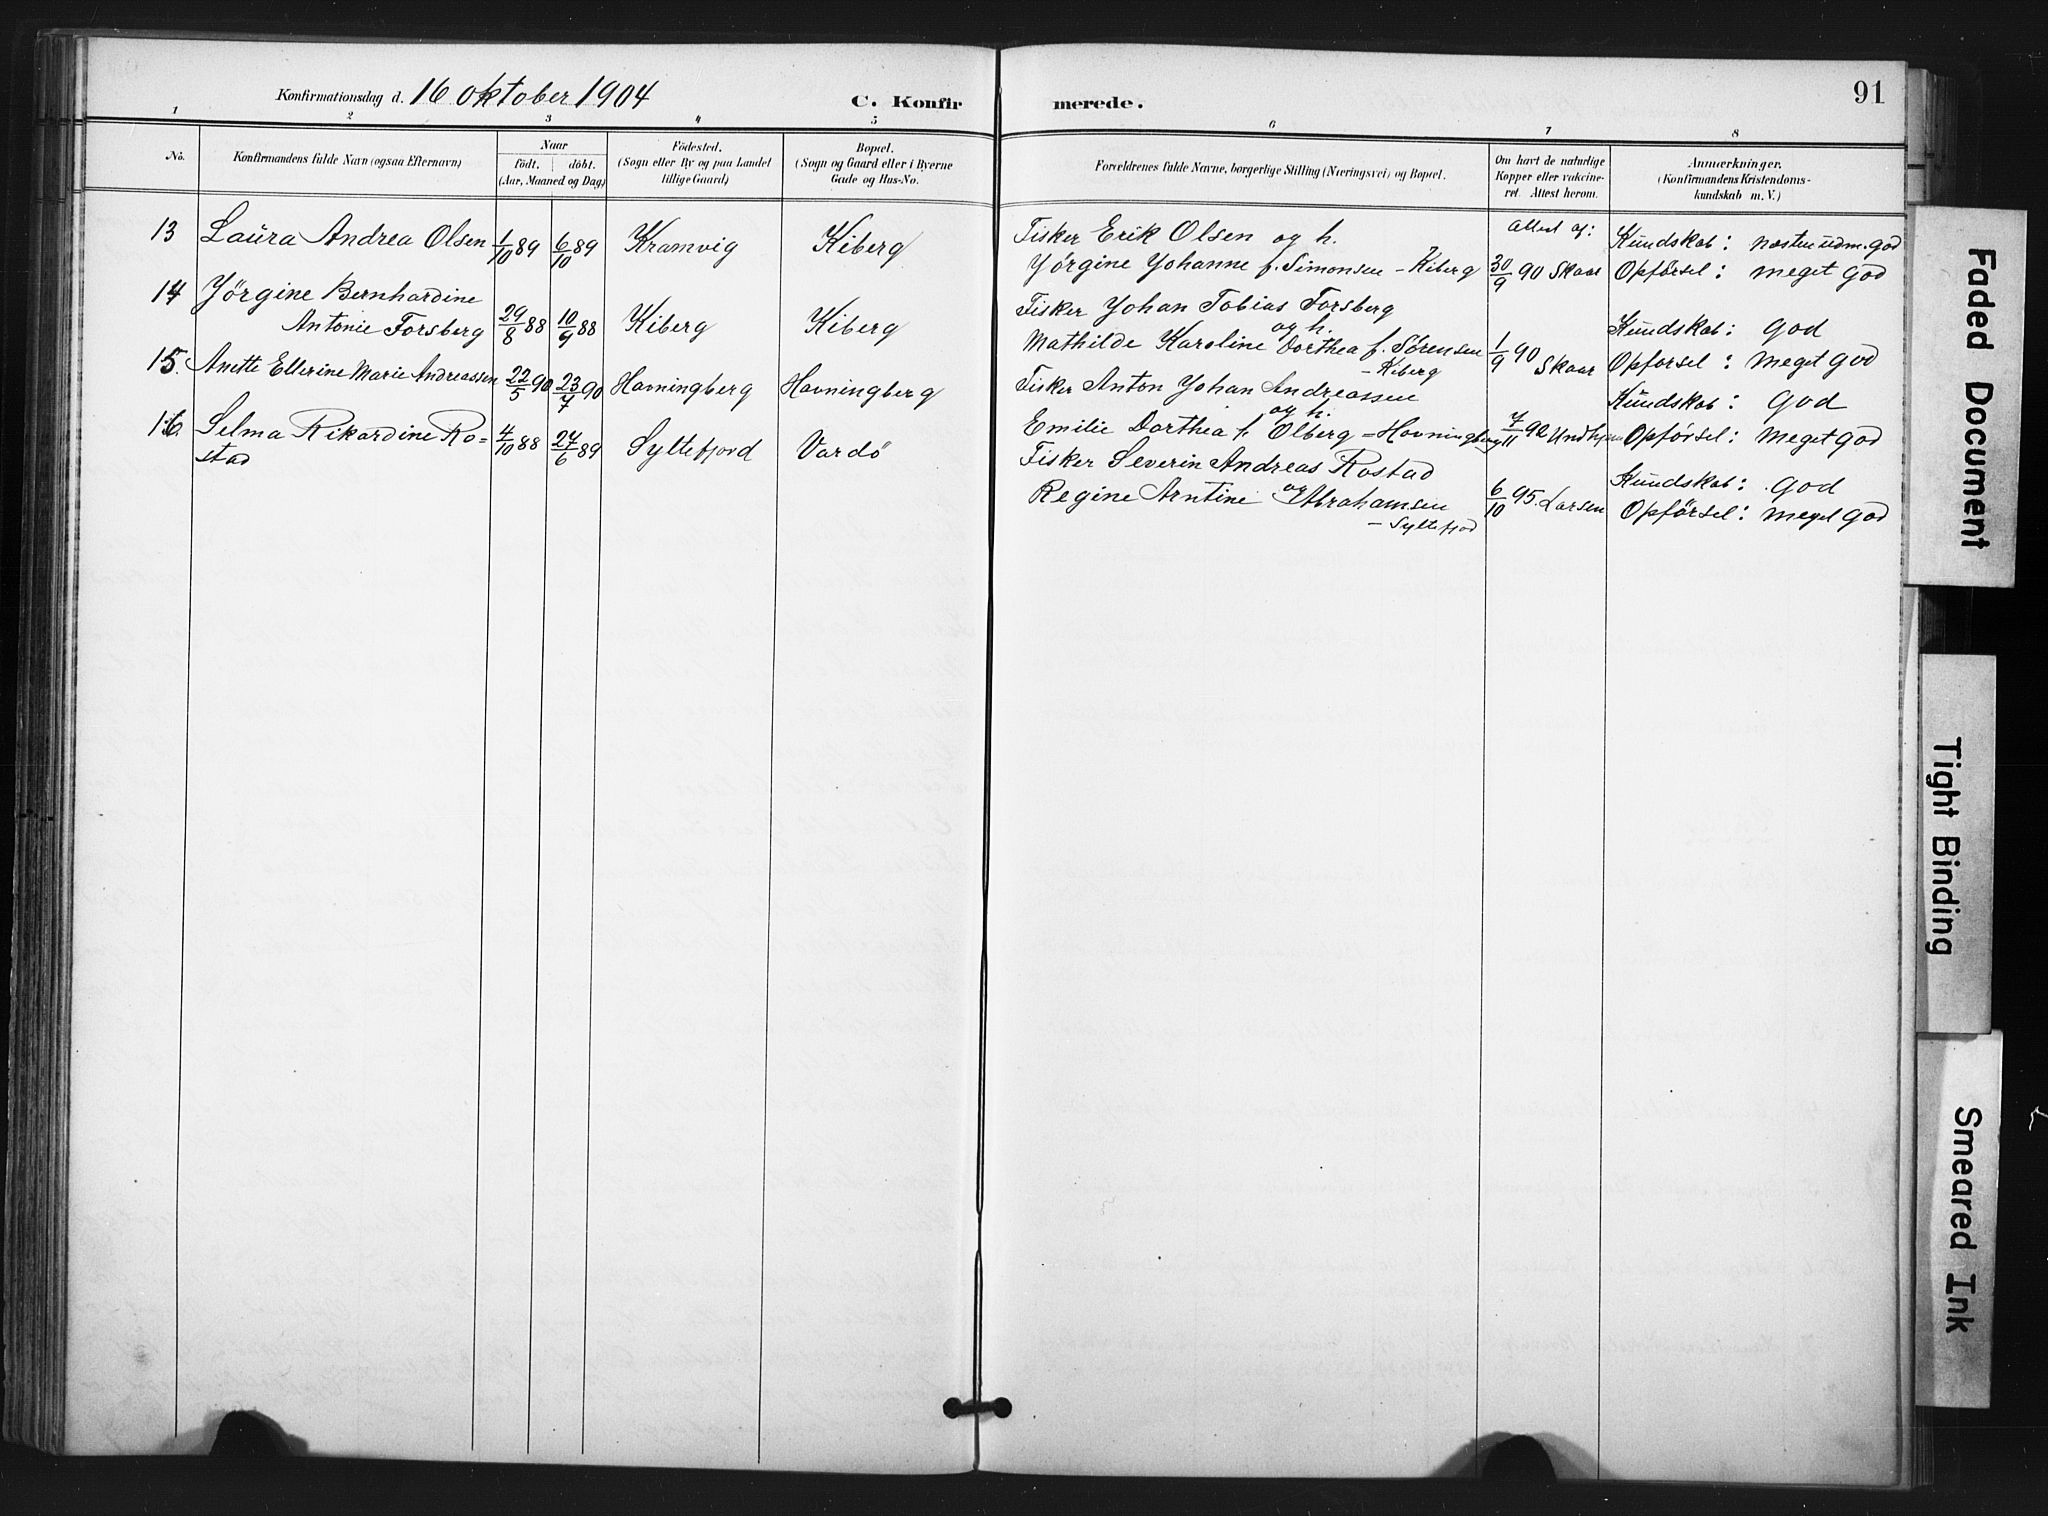 Konfirmationsdag d. 16 oktober 1904
C. Konfirmerede.
91
1 2 3 4 5 6 7 8
No.
Konfirmandens fulde Navn (ogsaa Efternavn)
Naar
födt. döbt.
(Aar, Maaned og Dag)
Födested.
(Sogn eller By og paa Landet
tillige Gaard)
Bopæl.
(Sogn og Gaard eller i Byerne
Gade og Hus-No.
Forældrenes fulde Navne, borgerlige Stilling (Næringsvei) og Bopæl.
Om havt de naturlige
Kopper eller vakcine-
ret. Attest herom.
Anmærkninger.
(Konfirmandens Kristendoms-
kundskab m. V.)
13 Laura Andrea Olsen 1/10 89 6/10 89 Kramvig Kiberg
Fisker Erik Olsen og h.
Jörgine Johanne f. Simonsen - Kiberg
Attest af:
30/9 90 Skaar
Kundskab: næsten udm. god
Opförsel: meget god
14 Jörgine Bernhardine
Antonie Forsberg 29/8 88 10/9 88 Kiberg Kiberg
Fisker Johan Tobias Forsberg
og h.
Mathilde Karoline Dorthea f. Sørensen
- Kiberg
1/9 90 Skaar
Kundskab: god
Opförsel: meget god
15. Anette Ellerine Marie Andreassen 22/5 90 23/7 90 Havningberg Havningberg
Fisker Anton Johan Andreassen
og h.
Emilie Dorthea f. Olberg - Havningberg
7/11 92
Kundskab: god
Opförsel: meget god
16. Selma Rikardine Ro-
stad 4/10 88 24/6 89 Syltefjord Vardö
Fisker Severin Andreas Rostad
og
Regine Arntine Abrahamsen
- Syltefjod
6/10 95. Larsen
Kundskab: god
Opförsel: meget god
Faded Document
Tight Binding
Smeared Ink